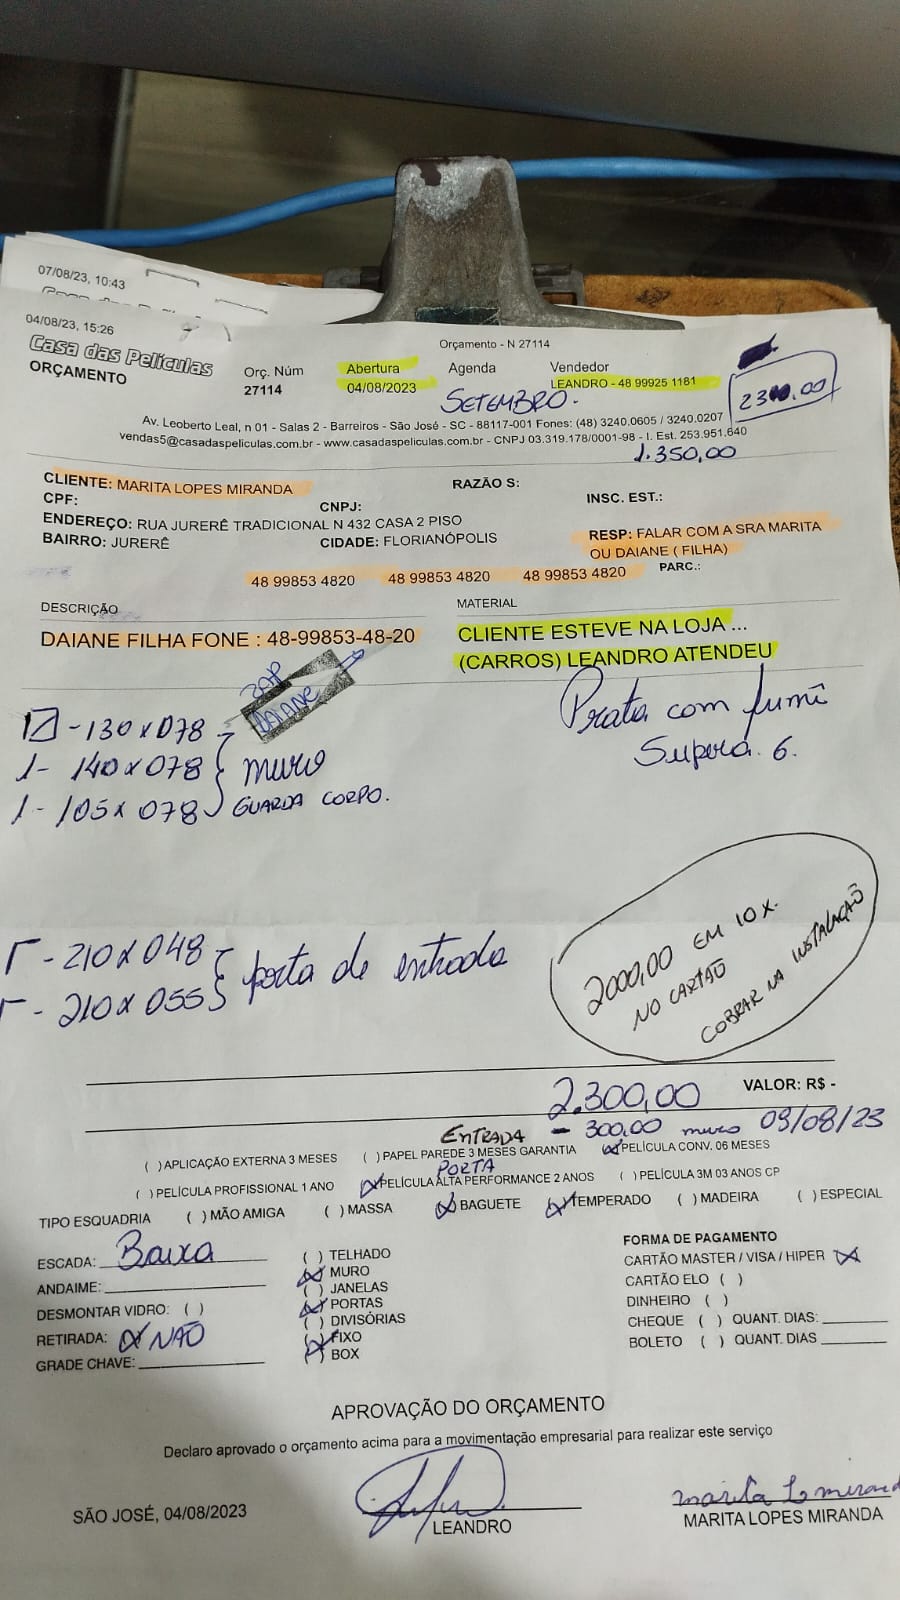 07/08/23, 10:43
04/08/23, 15:26
Orçamento - N 27114
Casa das Películas
ORÇAMENTO
Orç. Núm
27114
Abertura
04/08/2023
Agenda
SETEMBRO.
Vendedor
LEANDRO - 48 99925 1181
Av. Leoberto Leal, n 01 - Salas 2 - Barreiros - São José - SC - 88117-001 Fones: (48) 3240.0605 / 3240.0207
vendas5@casadaspeliculas.com.br - www.casadaspeliculas.com.br - CNPJ 03.319.178/0001-98 - I. Est. 253.951.640
1.350,00
CLIENTE: MARITA LOPES MIRANDA
RAZÃO S:
CPF:
CNPJ:
INSC. EST.:
ENDEREÇO: RUA JURERÊ TRADICIONAL N 432 CASA 2 PISO
BAIRRO: JURERÊ
CIDADE: FLORIANÓPOLIS
RESP: FALAR COM A SRA MARITA
OU DAIANE ( FILHA)
48 99853 4820 48 99853 4820 48 99853 4820
PARC.:
DESCRIÇÃO
MATERIAL
DAIANE FILHA FONE : 48-99853-48-20
CLIENTE ESTEVE NA LOJA ...
(CARROS) LEANDRO ATENDEU
ZAP
DAIANE
Prata com fumê
Supera 6.
- 130 x 078
1 - 140 x 078 muro
1 - 105 x 078 GUARDA CORPO.
2000,00 EM 10 X.
NO CARTÃO
COBRAR NA INSTALAÇÃO
1 - 210 x 048 porta de entrada
1 - 210 x 055
2.300,00 VALOR: R$ -
ENTRADA - 300,00 muro 09/08/23
( ) APLICAÇÃO EXTERNA 3 MESES ( ) PAPEL PAREDE 3 MESES GARANTIA (X) PELÍCULA CONV. 06 MESES
PORTA
( ) PELÍCULA PROFISSIONAL 1 ANO (X) PELÍCULA ALTA PERFORMANCE 2 ANOS ( ) PELÍCULA 3M 03 ANOS CP
TIPO ESQUADRIA ( ) MÃO AMIGA ( ) MASSA (X) BAGUETE (X) TEMPERADO ( ) MADEIRA ( ) ESPECIAL
ESCADA: Baixa
ANDAIME:
DESMONTAR VIDRO: ( )
RETIRADA: (X) NÃO
GRADE CHAVE:
( ) TELHADO
(X) MURO
( ) JANELAS
(X) PORTAS
( ) DIVISÓRIAS
(X) FIXO
( ) BOX
FORMA DE PAGAMENTO
CARTÃO MASTER / VISA / HIPER (X)
CARTÃO ELO ( )
DINHEIRO ( )
CHEQUE ( ) QUANT. DIAS:
BOLETO ( ) QUANT. DIAS
APROVAÇÃO DO ORÇAMENTO
Declaro aprovado o orçamento acima para a movimentação empresarial para realizar este serviço
SÃO JOSÉ, 04/08/2023
LEANDRO
marita L miranda
MARITA LOPES MIRANDA